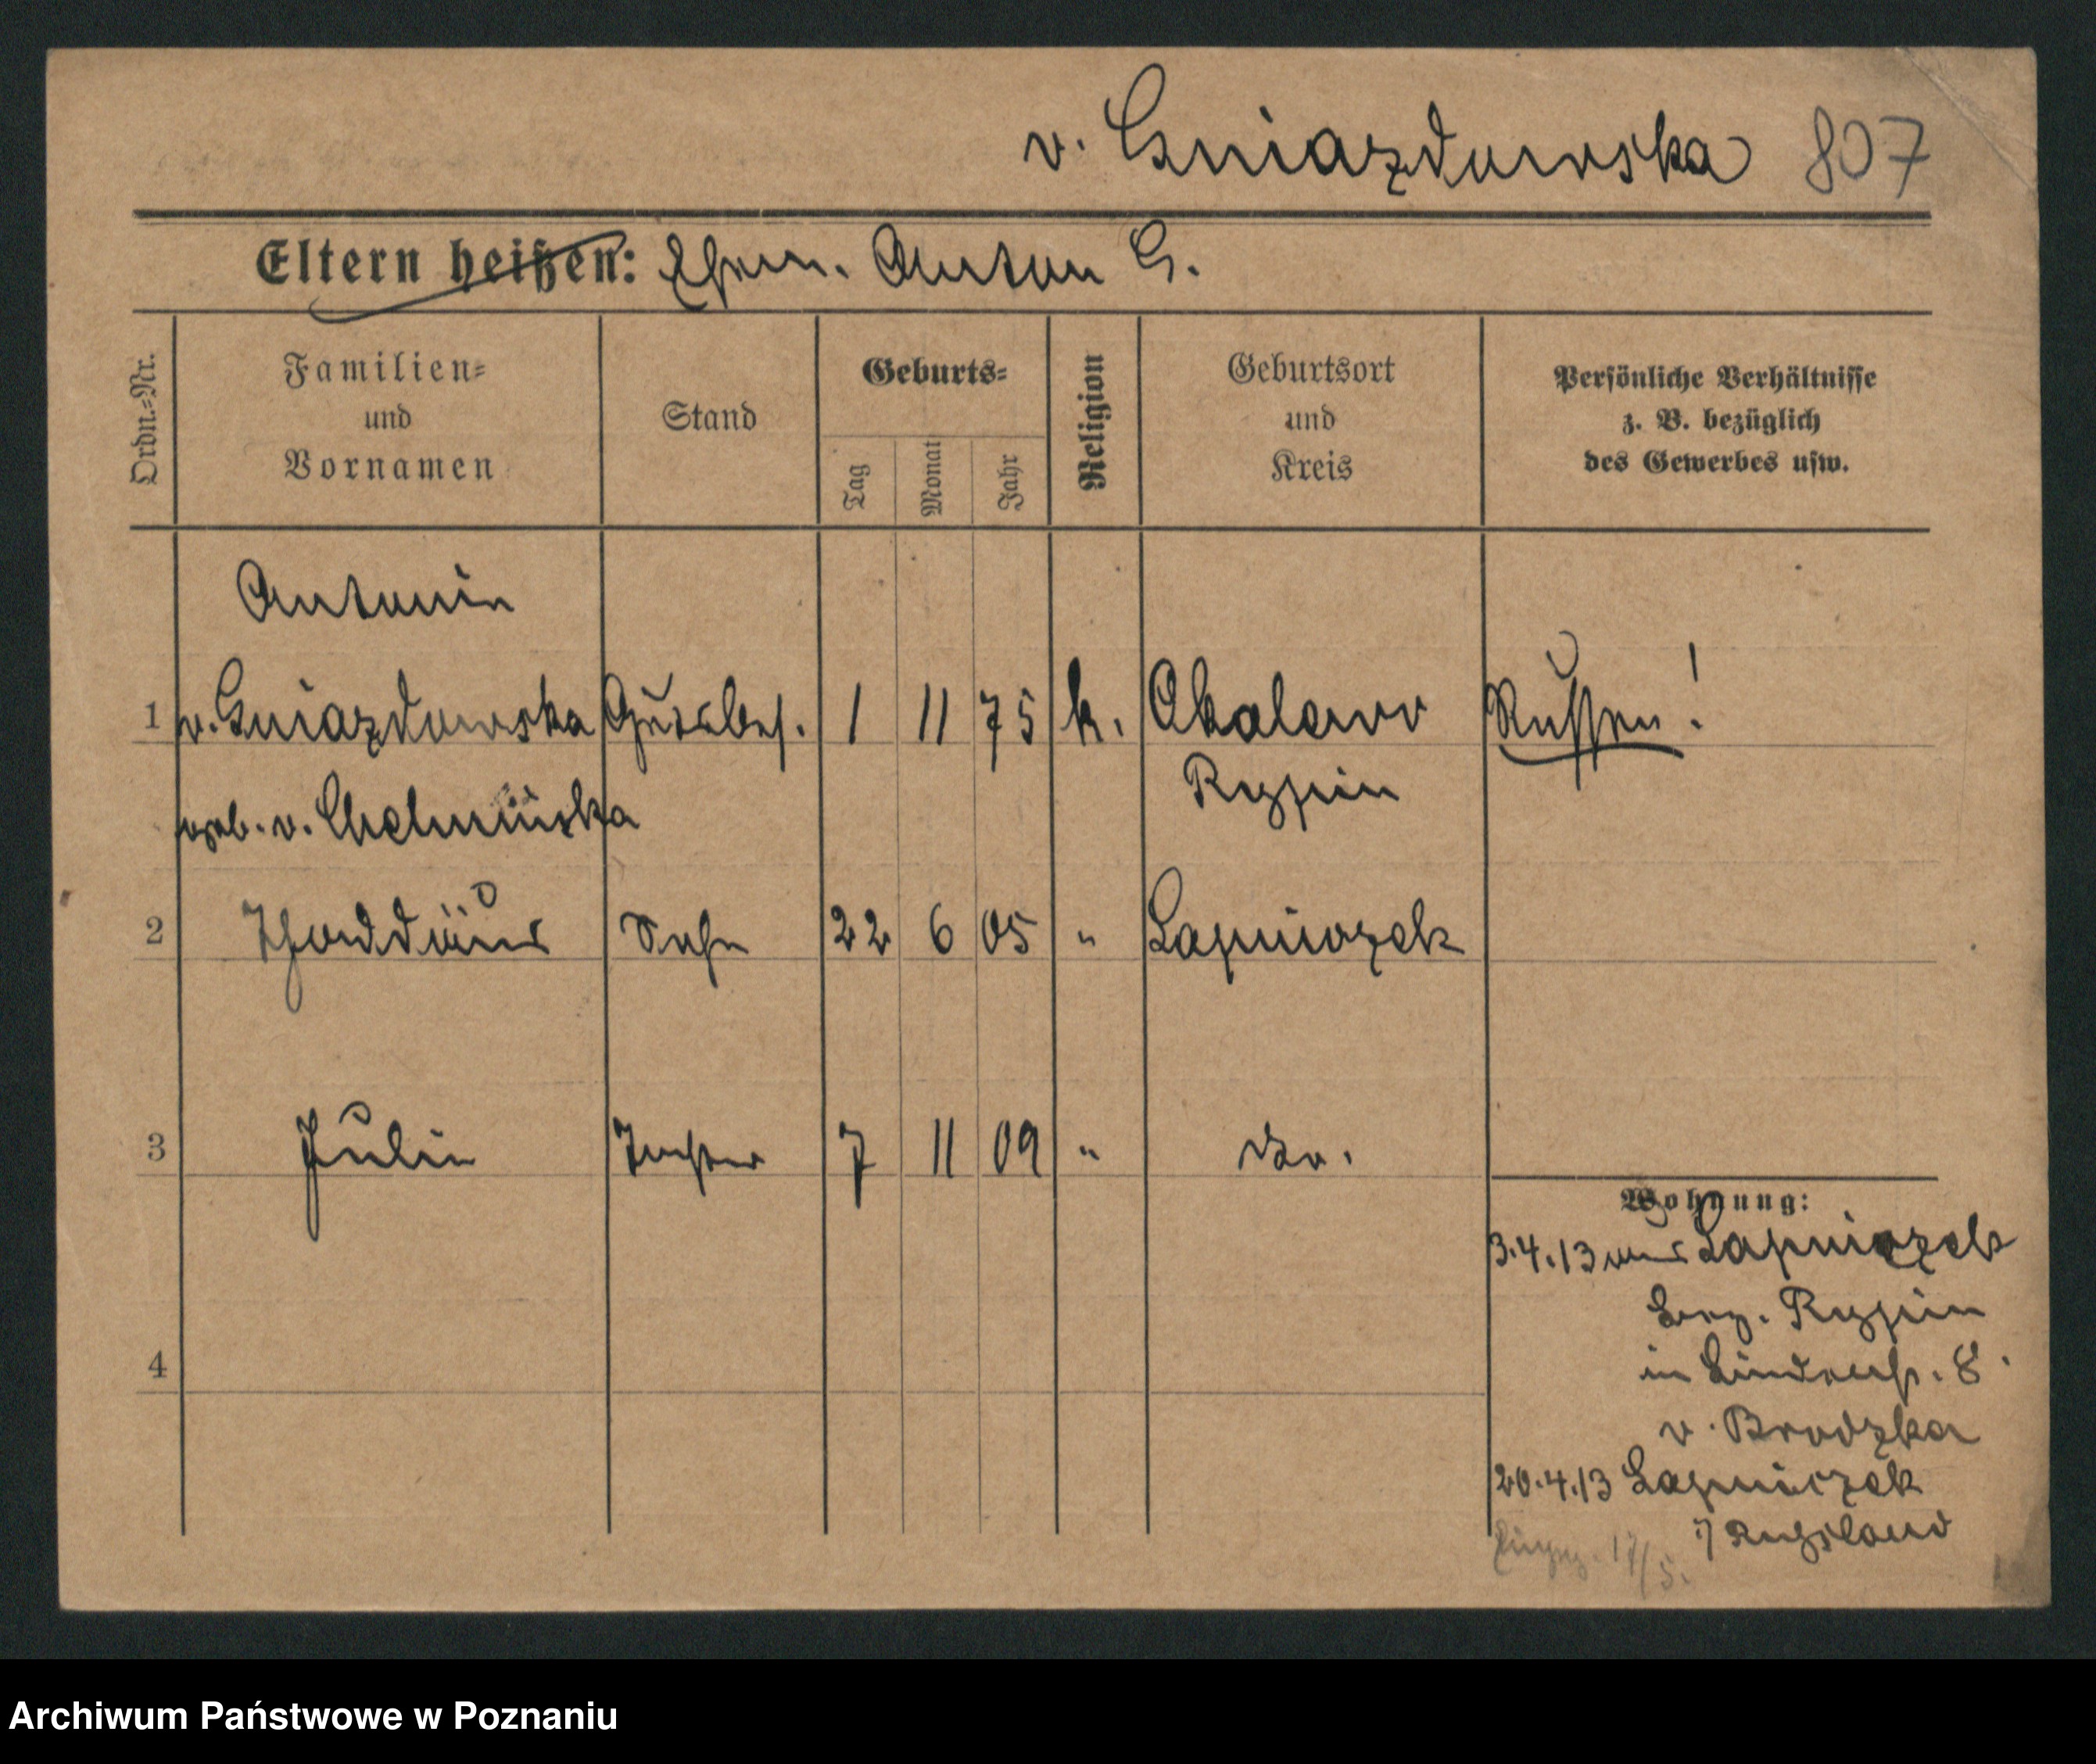 v. Gniazdowska 807
Eltern heißen: Ehem. Anton G.
Ordn.-Nr.
Familien-
und
Vornamen
Stand
Geburts-
Tag
Monat
Jahr
Religion
Geburtsort
und
Kreis
Persönliche Verhältnisse
z. B. bezüglich
des Gewerbes usw.
Antonin
1 v. Gniazdowska Gutsbes. 1 11 75 k. Okalewo Russen!
Rypin
geb. v. Chelmicka
2 Thaddäus Sohn 22 6 05 " Lapniozek
3 Julia Tochter 7 11 09 " do.
4
Wohnung:
3.4.13 aus Lapniozek
Bez. Rypin
in Lindenstr. 8
v. Brodzka
20.4.13 Lapniczek
i/ Russland
17/5.
Archiwum Państwowe w Poznaniu